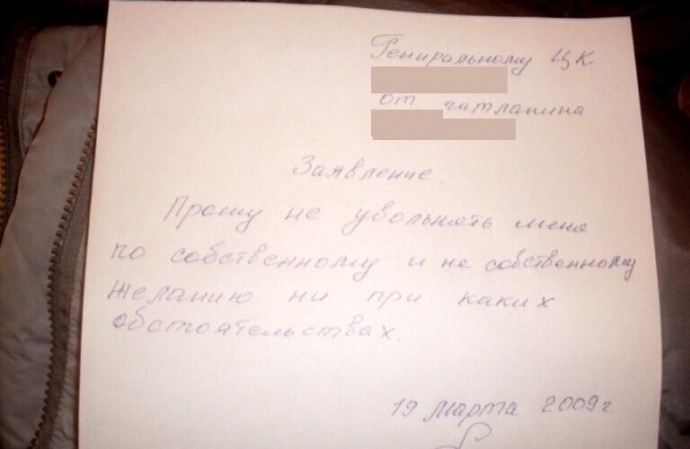 Гениральному ЦК
от чатланина
Заявление.
Прошу не увольнять меня
по собственному и не собственному
желанию ни при каких
обстоятельствах.
19 марта 2009 г.